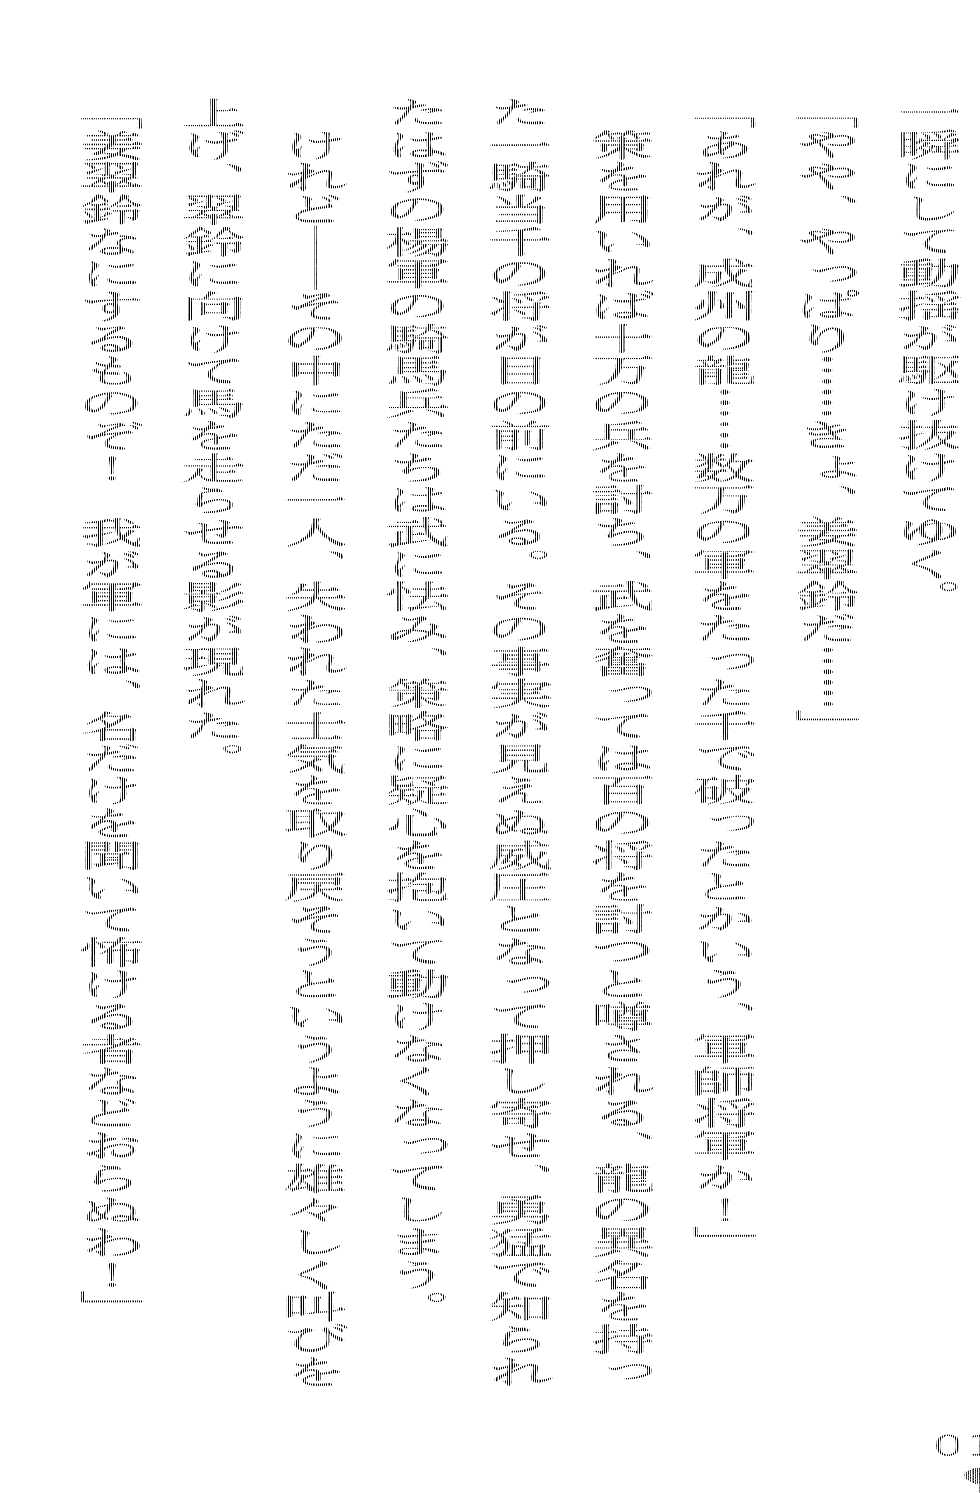 一瞬にして動揺が駆け抜けてゆく。
「やや、やっぱり……きょ、姜翠鈴だ……」
「あれが、成州の龍……数万の軍をたった千で破ったとかいう、軍師将軍か！」
策を用いれば十万の兵を討ち、武を奮っては百の将を討つと噂される、龍の異名を持っ
た一騎当千の将が目の前にいる。その事実が見えぬ威圧となって押し寄せ、勇猛で知られ
たはずの楊軍の騎馬兵たちは武に怯み、策略に疑心を抱いて動けなくなってしまう。
けれど――その中にただ一人、失われた士気を取り戻そうというように雄々しく叫びを
上げ、翠鈴に向けて馬を走らせる影が現れた。
「姜翠鈴なにするものぞ！　我が軍には、名だけを聞いて怖ける者などおらぬわ！」